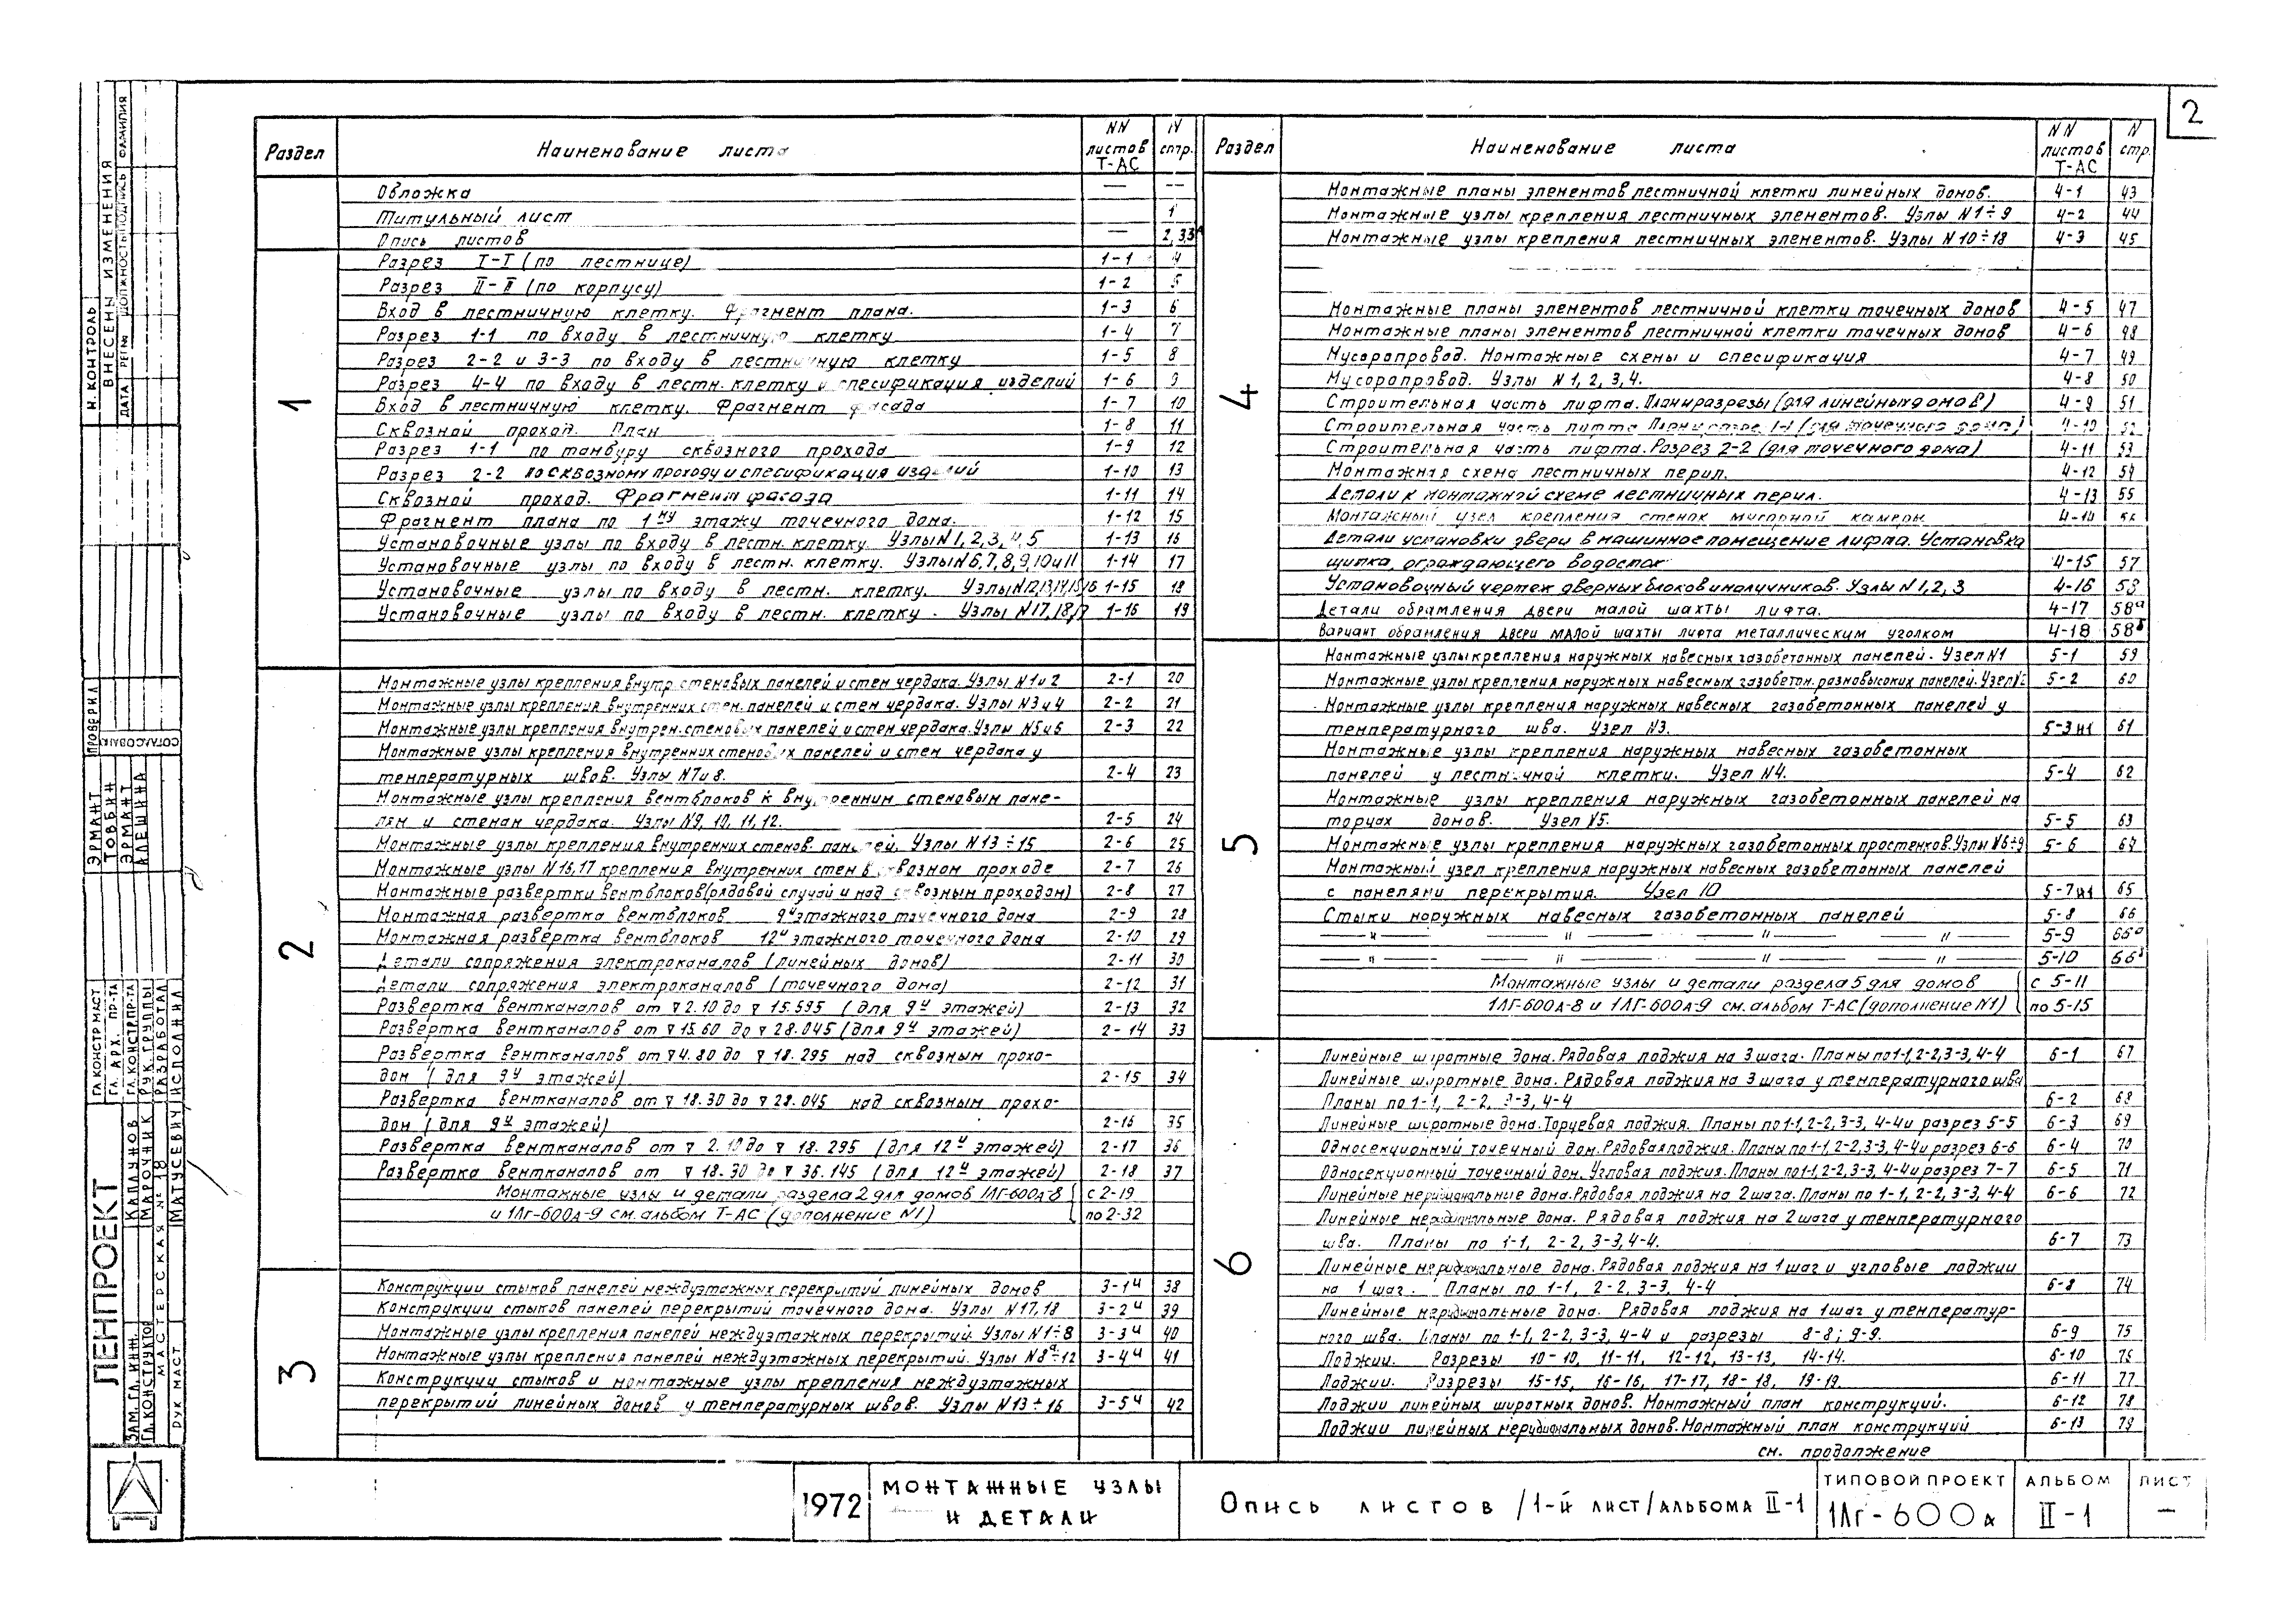 2
Раздел Наименование листа NN листов Т-АС N стр.
Обложка — —
Титульный лист 1
Опись листов — 2, 3,3а
1
Разрез I-I (по лестнице) 1-1 4
Разрез II-II (по корпусу) 1-2 5
Вход в лестничную клетку. Фрагмент плана. 1-3 6
Разрез 1-1 по входу в лестничную клетку 1-4 7
Разрез 2-2 и 3-3 по входу в лестничную клетку 1-5 8
Разрез 4-4 по входу в лестн. клетку и спесификация изделий 1-6 9
Вход в лестничную клетку. Фрагмент фасада 1-7 10
Сквозной проход. План 1-8 11
Разрез 1-1 по тамбуру сквозного прохода 1-9 12
Разрез 2-2 по сквозному проходу и спесификация изделий 1-10 13
Сквозной проход. Фрагмент фасада 1-11 14
Фрагмент плана по 1му этажу точечного дома. 1-12 15
Установочные узлы по входу в лестн. клетку. Узлы N1, 2, 3, 4, 5 1-13 16
Установочные узлы по входу в лестн. клетку. Узлы N6, 7, 8, 9, 10 и 11 1-14 17
Установочные узлы по входу в лестн. клетку. Узлы N12,13,14,15,16 1-15 18
Установочные узлы по входу в лестн. клетку. Узлы N17, 18, 1-16 19
2
Монтажные узлы крепления внутр. стеновых панелей и стен чердака. Узлы N1 и 2 2-1 20
Монтажные узлы крепления внутренних стен. панелей и стен чердака. Узлы N3 и 4 2-2 21
Монтажные узлы крепления внутрен. стеновых панелей и стен чердака. Узлы N5 и 6 2-3 22
Монтажные узлы крепления внутренних стеновых панелей и стен чердака у
температурных швов. Узлы N7 и 8. 2-4 23
Монтажные узлы крепления вентблоков к внутренним стеновым пане-
лям и стенам чердака. Узлы N9, 10, 11, 12. 2-5 24
Монтажные узлы крепления внутренних стенов. панелей. Узлы N13÷15 2-6 25
Монтажные узлы N16, 17 крепления внутренних стен в сквозном проходе 2-7 26
Монтажные развертки вентблоков (рядовой случай и над сквозным проходом) 2-8 27
Монтажная развертка вентблоков 9и этажного точечного дома 2-9 28
Монтажная развертка вентблоков 12и этажного точечного дома 2-10 29
Детали сопряжения электроканалов (линейных домов) 2-11 30
Детали сопряжения электроканалов (точечного дома) 2-12 31
Развертка вентканалов от ▽ 2.10 до ▽ 15.595 (для 9и этажей) 2-13 32
Развертка вентканалов от ▽ 15.60 до ▽ 28.045 (для 9и этажей) 2-14 33
Развертка вентканалов от ▽ 4.80 до ▽ 18.295 над сквозным прохо-
дом (для 9и этажей) 2-15 34
Развертка вентканалов от ▽ 18.30 до ▽ 28.045 над сквозным прохо-
дом (для 9и этажей) 2-16 35
Развертка вентканалов от ▽ 2.10 до ▽ 18.295 (для 12и этажей) 2-17 36
Развертка вентканалов от ▽ 18.30 до ▽ 36.145 (для 12и этажей) 2-18 37
Монтажные узлы и детали раздела 2 для домов 1ЛГ-600А-8 с 2-19
и 1ЛГ-600А-9 см. альбом Т-АС (дополнение N1) по 2-32
3
Конструкции стыков панелей междуэтажных перекрытий линейных домов 3-1и 38
Конструкции стыков панелей перекрытий точечного дома. Узлы N17, 18 3-2и 39
Монтажные узлы крепления панелей междуэтажных перекрытий. Узлы N1÷8 3-3и 40
Монтажные узлы крепления панелей междуэтажных перекрытий. Узлы N8а÷12 3-4и 41
Конструкции стыков и монтажные узлы крепления междуэтажных
перекрытий линейных домов у температурных швов. Узлы N13÷16 3-5и 42
Раздел Наименование листа NN листов Т-АС N стр.
4
Монтажные планы элементов лестничной клетки линейных домов. 4-1 43
Монтажные узлы крепления лестничных элементов. Узлы N1÷9 4-2 44
Монтажные узлы крепления лестничных элементов. Узлы N10÷18 4-3 45
Монтажные планы элементов лестничной клетки точечных домов 4-5 47
Монтажные планы элементов лестничной клетки точечных домов 4-6 48
Мусоропровод. Монтажные схемы и спесификация 4-7 49
Мусоропровод. Узлы N1, 2, 3, 4. 4-8 50
Строительная часть лифта. План и разрезы (для линейных домов) 4-9 51
Строительная часть лифта План и разрез 1-1 (для точечного дома) 4-10 52
Строительная часть лифта. Разрез 2-2 (для точечного дома) 4-11 53
Монтажная схема лестничных перил. 4-12 54
Детали к монтажной схеме лестничных перил. 4-13 55
Монтажный узел крепления стенок мусорной камеры 4-14 56
Детали установки двери в машинное помещение лифта. Установка
щитка, ограждающего водосток 4-15 57
Установочный чертеж дверных блоков и наличников. Узлы N1, 2, 3 4-16 58
Детали обрамления двери малой шахты лифта. 4-17 58а
Вариант обрамления двери малой шахты лифта металлическим уголком 4-18 58б
5
Монтажные узлы крепления наружных навесных газобетонных панелей. Узел N1 5-1 59
Монтажные узлы крепления наружных навесных газобетон. разновысоких панелей. Узел N2 5-2 60
Монтажные узлы крепления наружных навесных газобетонных панелей у
температурного шва. Узел N3. 5-3и1 61
Монтажные узлы крепления наружных навесных газобетонных
панелей у лестничной клетки. Узел N4. 5-4 62
Монтажные узлы крепления наружных газобетонных панелей на
торцах домов. Узел N5. 5-5 63
Монтажные узлы крепления наружных газобетонных простенков. Узлы N6÷9 5-6 64
Монтажный узел крепления наружных навесных газобетонных панелей
с панелями перекрытия. Узел 10 5-7и1 65
Стыки наружных навесных газобетонных панелей 5-8 66
— " — " — " — " — 5-9 66а
— " — " — " — " — 5-10 66б
Монтажные узлы и детали раздела 5 для домов с 5-11
1ЛГ-600А-8 и 1ЛГ-600А-9 см. альбом Т-АС (дополнение N1) по 5-15
6
Линейные широтные дома. Рядовая лоджия на 3 шага. Планы по 1-1, 2-2, 3-3, 4-4 6-1 67
Линейные широтные дома. Рядовая лоджия на 3 шага у температурного шва
Планы по 1-1, 2-2, 3-3, 4-4 6-2 68
Линейные широтные дома. Торцевая лоджия. Планы по 1-1, 2-2, 3-3, 4-4 и разрез 5-5 6-3 69
Односекционный точечный дом. Рядовая лоджия. Планы по 1-1, 2-2, 3-3, 4-4 и разрез 6-6 6-4 70
Односекционный точечный дом. Угловая лоджия. Планы по 1-1, 2-2, 3-3, 4-4 и разрез 7-7 6-5 71
Линейные меридиональные дома. Рядовая лоджия на 2 шага. Планы по 1-1, 2-2, 3-3, 4-4 6-6 72
Линейные меридиональные дома. Рядовая лоджия на 2 шага у температурного
шва. Планы по 1-1, 2-2, 3-3, 4-4. 6-7 73
Линейные меридиональные дома. Рядовая лоджия на 1 шаг и угловые лоджии
на 1 шаг. Планы по 1-1, 2-2, 3-3, 4-4 6-8 74
Линейные меридиональные дома. Рядовая лоджия на 1 шаг у температур-
ного шва. Планы по 1-1, 2-2, 3-3, 4-4 и разрезы 8-8; 9-9. 6-9 75
Лоджии. Разрезы 10-10, 11-11, 12-12, 13-13, 14-14. 6-10 76
Лоджии. Разрезы 15-15, 16-16, 17-17, 18-18, 19-19. 6-11 77
Лоджии линейных широтных домов. Монтажный план конструкций. 6-12 78
Лоджии линейных меридиональных домов. Монтажный план конструкций 6-13 79
см. продолжение
1972
МОНТАЖНЫЕ УЗЛЫ
И ДЕТАЛИ
Опись листов /1-й лист/ альбома II-1
ТИПОВОЙ ПРОЕКТ
1ЛГ-600А
АЛЬБОМ
II-1
ЛИСТ
—
Н. КОНТРОЛЬ
ВНЕСЕНЫ ИЗМЕНЕНИЯ
ДАТА РЕГ№ ДОЛЖНОСТЬ ПОДПИСЬ ФАМИЛИЯ
ПРОВЕРИЛ
СОГЛАСОВАНО
ЭРМАНТ
ТОВБИН
ЭРМАНТ
АЛЕШИНА
ГЛ. КОНСТР. МАСТ
ГЛ. АРХ. ПР-ТА
ГЛ. КОНСТР. ПР-ТА
РУК. ГРУППЫ
РАЗРАБОТАЛ
ИСПОЛНИЛ
ЛЕНПРОЕКТ
ЗАМ. ГЛ. ИНЖ. КАПЛУНОВ
ГЛ. КОНСТРУКТОР МАРОЧНИК
МАСТЕРСКАЯ № 18
РУК МАСТ МАТУСЕВИЧ